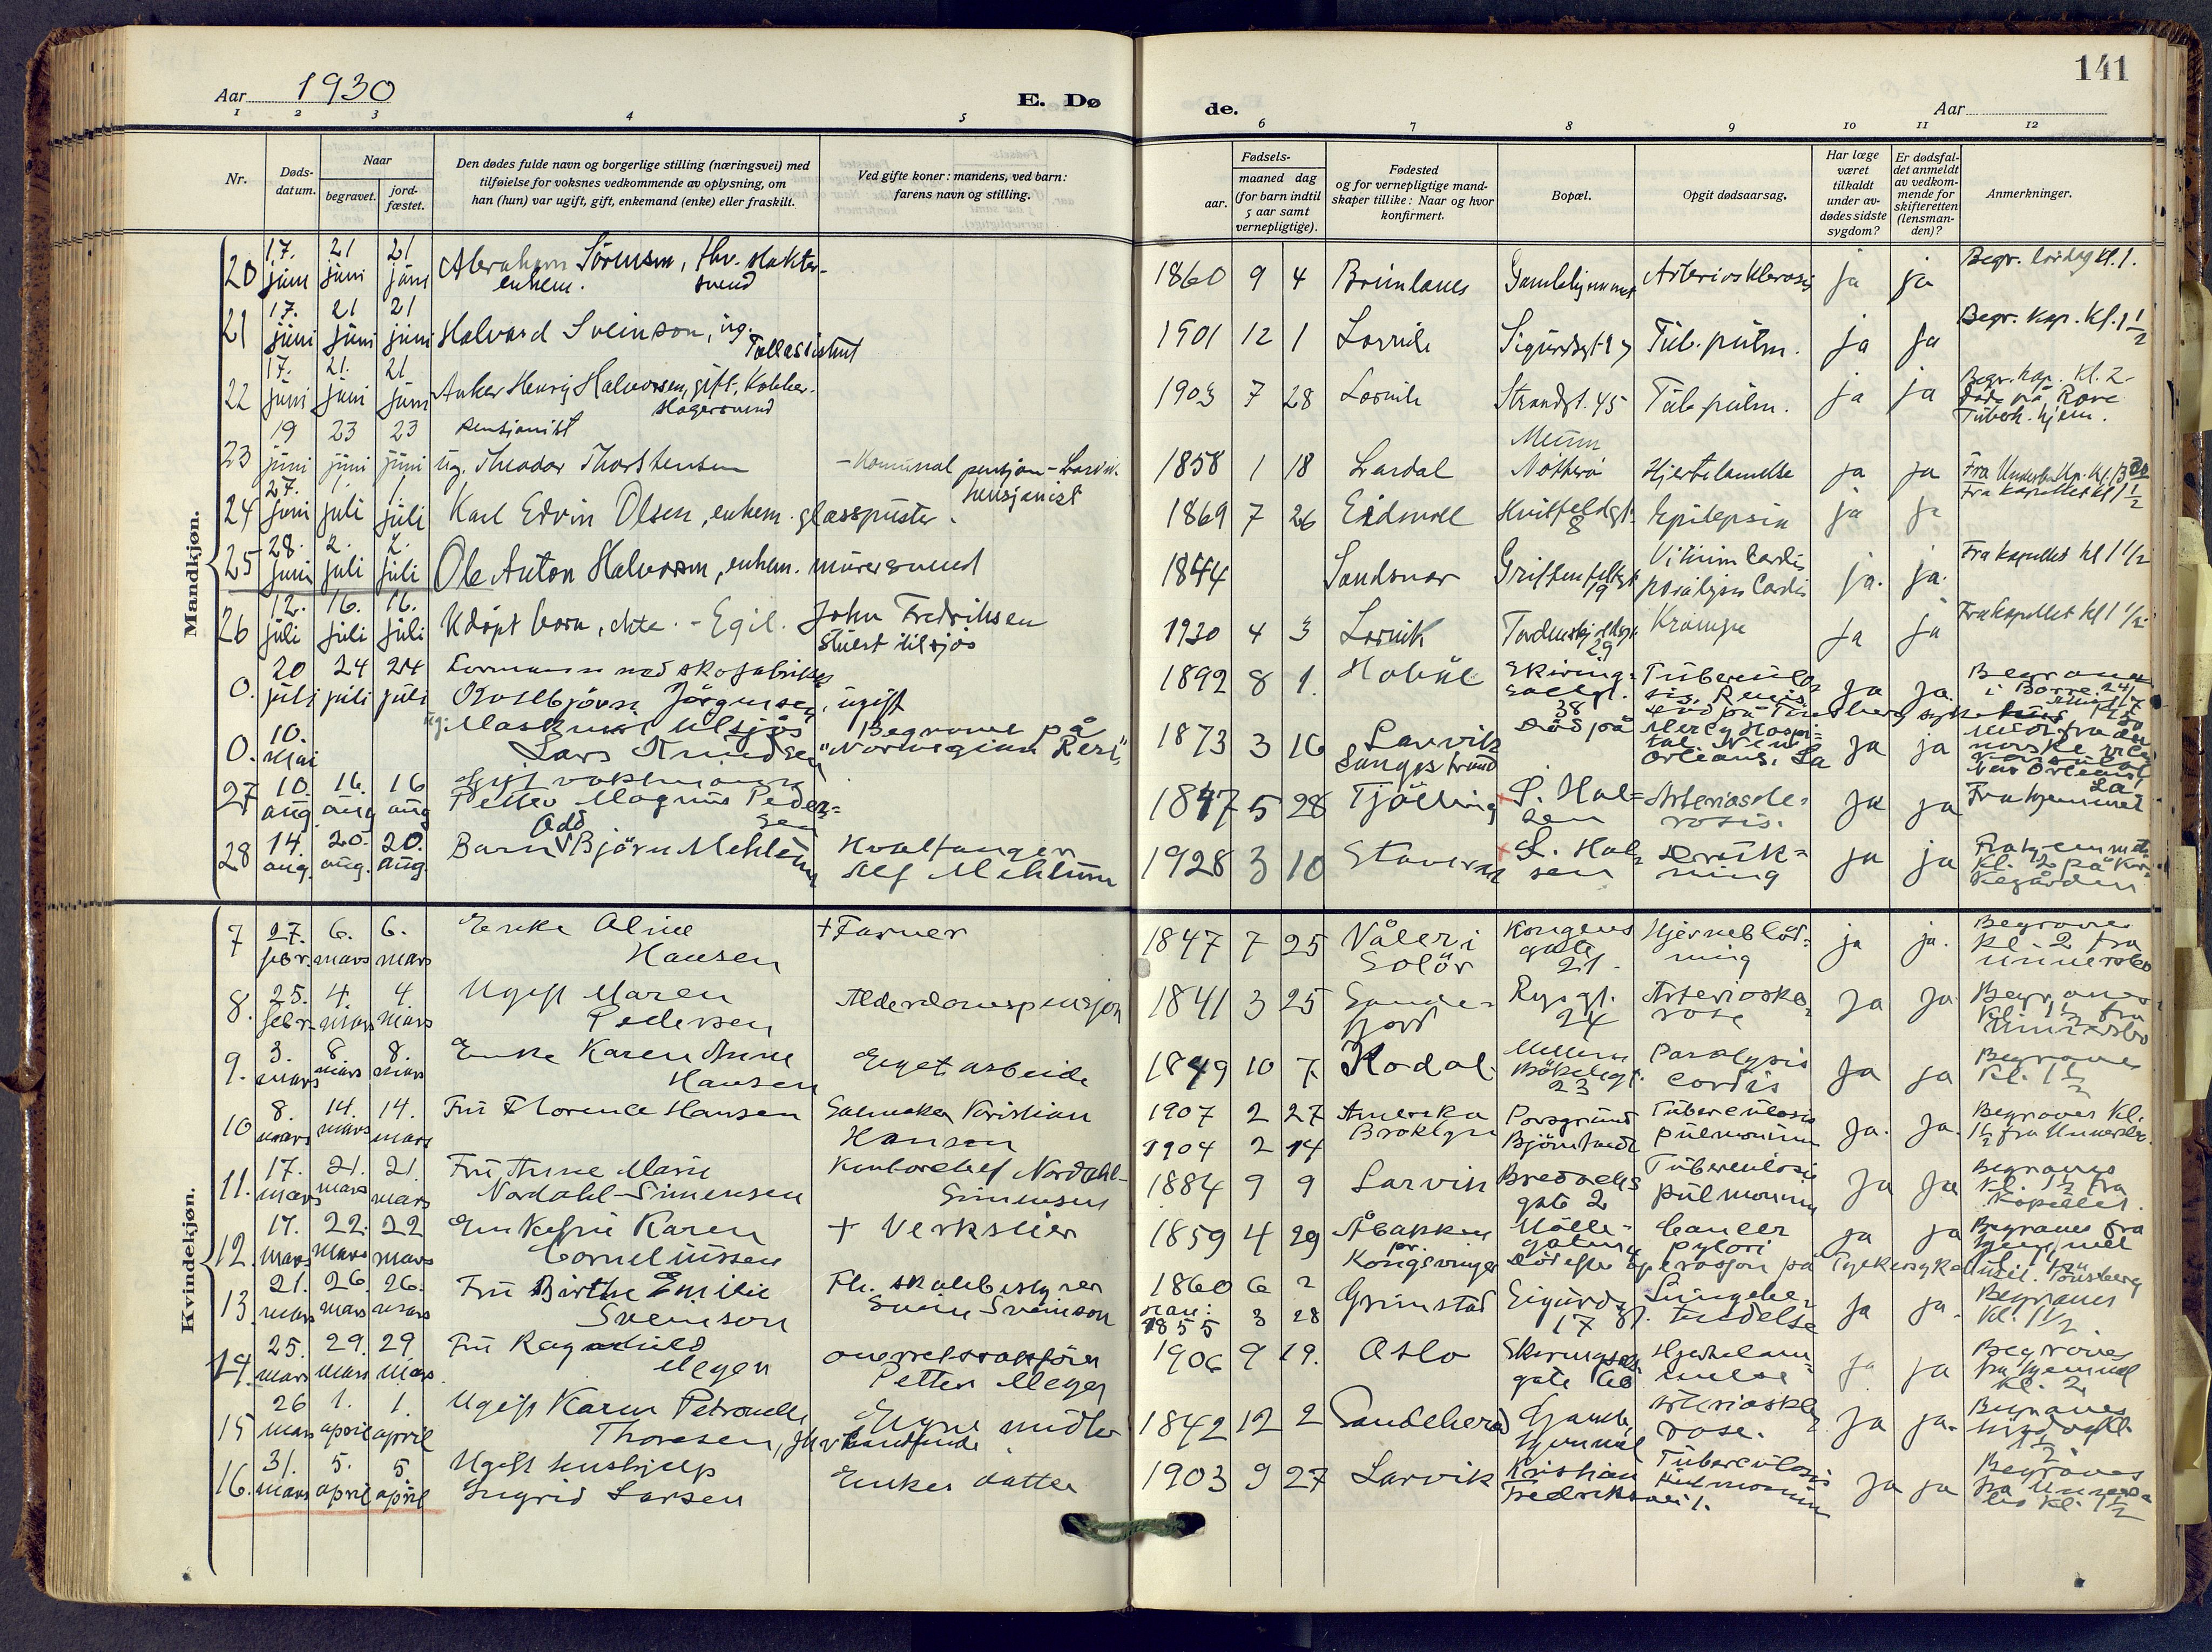 141
Aar 1930
E. Dø
de.
Aar
1 2 3 4 5 6 7 8 9 10 11 12
Nr.
Døds-
datum.
Naar
begravet.
jord-
fæstet.
Den dødes fulde navn og borgerlige stilling (næringsvei) med
tilføielse for voksnes vedkommende av oplysning, om
han (hun) var ugift, gift, enkemand (enke) eller fraskilt.
Ved gifte koner: mandens, ved barn:
farens navn og stilling.
Fødsels-
aar.
maaned dag
(for barn indtil
5 aar samt
vernepligtige).
Fødested
og for vernepligtige mand-
skaper tillike: Naar og hvor
konfirmert.
Bopæl.
Opgit dødsaarsag.
Har læge
været
tilkaldt
under av-
dødes sidste
sygdom?
Er dødsfal-
det anmeldt
av vedkom-
mende for
skifteretten
(lensman-
den)?
Anmerkninger.
Mandkjøn.
20 17. juni 21 juni 21 juni Abraham Sörensen, fhv. slakter-
enkem. svend
1860 9 4 Brunlanes Gamlehjemmet Arteriosklerosis ja ja Begr. lördag kl. 1.
21 17. juni 21 juni 21 juni Halvard Sveinson, ug.
Tollassistent
1901 12 1 Larvik Sigurdsgt. 17 Tub. pulm. ja ja Begr. kap. kl. 1 1/2
22 17. juni 21. juni 21 juni Anker Henrij Halvorsen, gift, Kobber-
slagersvend
1903 7 28 Larvik Strandgt. 45 Tub. pulm. ja ja Begr. kap. kl. 2
död på Rove
Tuberk. hjem.
23 19 juni 23 juni 23 juni pensjonist
ug. Theodor Thorstensen - Komunal pensjon - Larvik
pensjonist
1858 1 18 Lardal Nötterö Hjertelamelse ja ja
24 27. juni 1. juli 1. juli Karl Edvin Olsen, enkem. glasspuster.
1869 7 26 Eidsvoll Hvitfeldgt. 8 Epilepsia ja ja Fra kapellet kl 1 1/2
25 28. juni 2. juli 2. juli Ole Anton Halvorsen, enkem. murersvend
1844 Sandsvær Griffenfeldtgt 19 Vitium Cordis
paralysis Cordis ja. ja. Fra kapellet kl 1 1/2
26 12. juli 16. juli 16. juli Udöpt barn, ekte. - Egil. John Fredriksen
stuert tilsjös
1930 4 3 Larvik 29 Krampe ja ja Fra kapellet kl 1 1/2
0. 20 juli 24 juli 24 juli Formann ved skofabrikk
Kolbjörn Jörgensen, ugift
1892 8 1. Skirings-
salgt.
38 Tuberculo-
sis Renis.
död på Tönsberg sykehus ja ja. Begraves
i Borre 24/7
0. 10. mai ug. Maskinist tilsjös
Lars Knudsen Begravet på
"Norwegian Rest"
1873 3 16 Larvik
Langestrand Död på Mercy Hospi-
tal. New
Orleans, La ja ja Meldt fra det
norske vice
konsulat
New Orleans
La
27 10. aug 16. aug 16 aug Gift vaktmann
Petter Magnus Peder-
sen
1847 5 28 Tjölling S. Hal-
sen Arterioscle-
rosis. ja ja Fra hjemmet
28 14. aug. 20. aug. 20. aug. Barn Odd Björn Mehlum Hvalfanger
Alf Mehlum
1928 3 10 Stavern S. Hal-
sen Druk-
ning ja ja Fra hjemmet
kl. 2 på kir-
kegården
Kvindekjøn.
7 27. febr. 6. mars 6. mars Enke Aline
Hansen + Farver
1847 7 25 Våler i
Solör Kongens
gate
21. Hjerneblöd-
ning ja ja. Begraves
kl. 2 fra
Undersbo
8. 25. febr. 4. mars 4. mars Ugift Maren
Pedersen Alderdomspensjon
1841 3 25 Sande-
fjord 24 Arterioskle-
rose ja ja Begraves
kl. 1 1/2 fra
Undersbo
9. 3. mars 8. mars 8. mars Enke Karen Anne
Hansen Eget arbeide
1849 10 7. Kodal. Mellem
Bökeligt.
23 Paralysis
cordis ja ja Begraves
kl. 1 1/2
10 8. mars 14. mars 14. mars Fru Florence Hansen Salmaker Kristian
Hansen
1907 2 27 Amerika
Broklyn Porsgrund Tuberculosis
pulmonum ja. ja. Begraves kl.
1 1/2 fra Undersbo
1904 2 14
11. 17. mars 21. mars 21. mars Fru Anne Marie
Nordahl-Simensen Kontorchef Nordahl-
Simensen
1884 9 9 Larvik Bredochs
gate 2 Tuberculosis
pulmonum ja ja Begraves
kl. 1 1/2 fra
Kapellet.
12. 17. mars 22. mars 22 mars Enkefru Karen
Corneliussen + Verkseier
1859 4 29 Åbakken
pr.
Kongsvinger Mölle-
gaten 4 Cancer
pylori ja ja Begraves fra
hjemmet
Död efter operasjon på sykehuset i Tönsberg
13 21. mars 26. mars 26. mars Fru Birthe Emilie
Sveinson Fh. skolebestyrer
Svein Sveinson
1860 6 2
1855 3 28 Grimstad Sigurds gt.
17 Lungebe-
tendelse ja ja. Begraves
kl. 1 1/2
14. 25. mars 29. mars 29 mars Fru Ragnhild
Meyer overrettssakförer
Petter Meyer
1906 9 19. Oslo Skiringsals
gate Hjertelam-
melse ja ja Begraves
fra hjemmet
kl. 2
15 26 mars 1. april 1. april Ugift Karen Petronelle
Thoresen, Egne midler
1842 12 2 Sandeherad Gamle
hjemmet Arterioskle-
rose. ja ja. Begraves
1 1/2
16. 31. mars 5. april 5 april Ugift hushjelp
Ingrid Larsen Enkes datter
1903 9 27 Larvik Kristian
Fredriksvei 1. Tuberculosis
pulmonum ja ja Begraves
fra Unders-
bo kl. 1 1/2